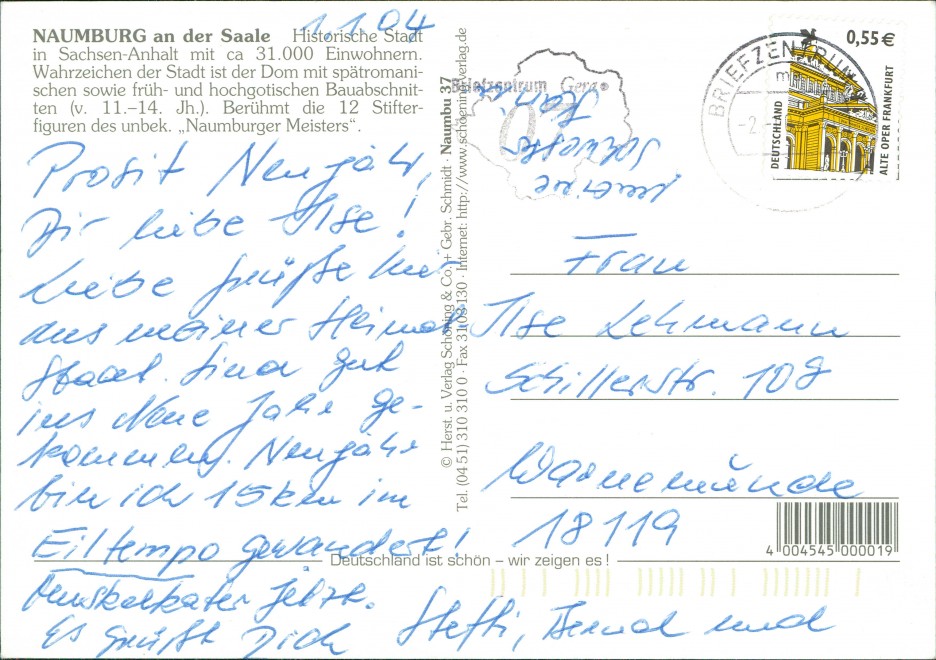 1.1.04
NAUMBURG an der Saale Historische Stadt
in Sachsen-Anhalt mit ca 31.000 Einwohnern.
Wahrzeichen der Stadt ist der Dom mit spätromani-
schen sowie früh- und hochgotischen Bauabschnit-
ten (v. 11.–14. Jh.). Berühmt die 12 Stifter-
figuren des unbek. „Naumburger Meisters“.
Prosit Neujahr,
Dir liebe Ilse!
Liebe Grüße
aus meiner Heimat
Stadt. Sind gut
ins Neue Jahr ge-
kommen. Neujahr
bin ich 15 km im
Eiltempo gewandert!
Muskelkater jetzt.
Es grüßt Dich Steffi, Bernd und
meine
Schwester
© Herst. u. Verlag Schöning & Co. + Gebr. Schmidt · Naumbu 37
Tel. (04 51) 310 310 0 · Fax 31 03 130 · Internet: http://www.schoening-verlag.de
Briefzentrum Gera
07
BRIEFZENTRUM
0,55 €
DEUTSCHLAND
ALTE OPER FRANKFURT
Frau
Ilse Lehmann
Schillerstr. 108
Warnemünde
18119
4 004545 000019
Deutschland ist schön – wir zeigen es!